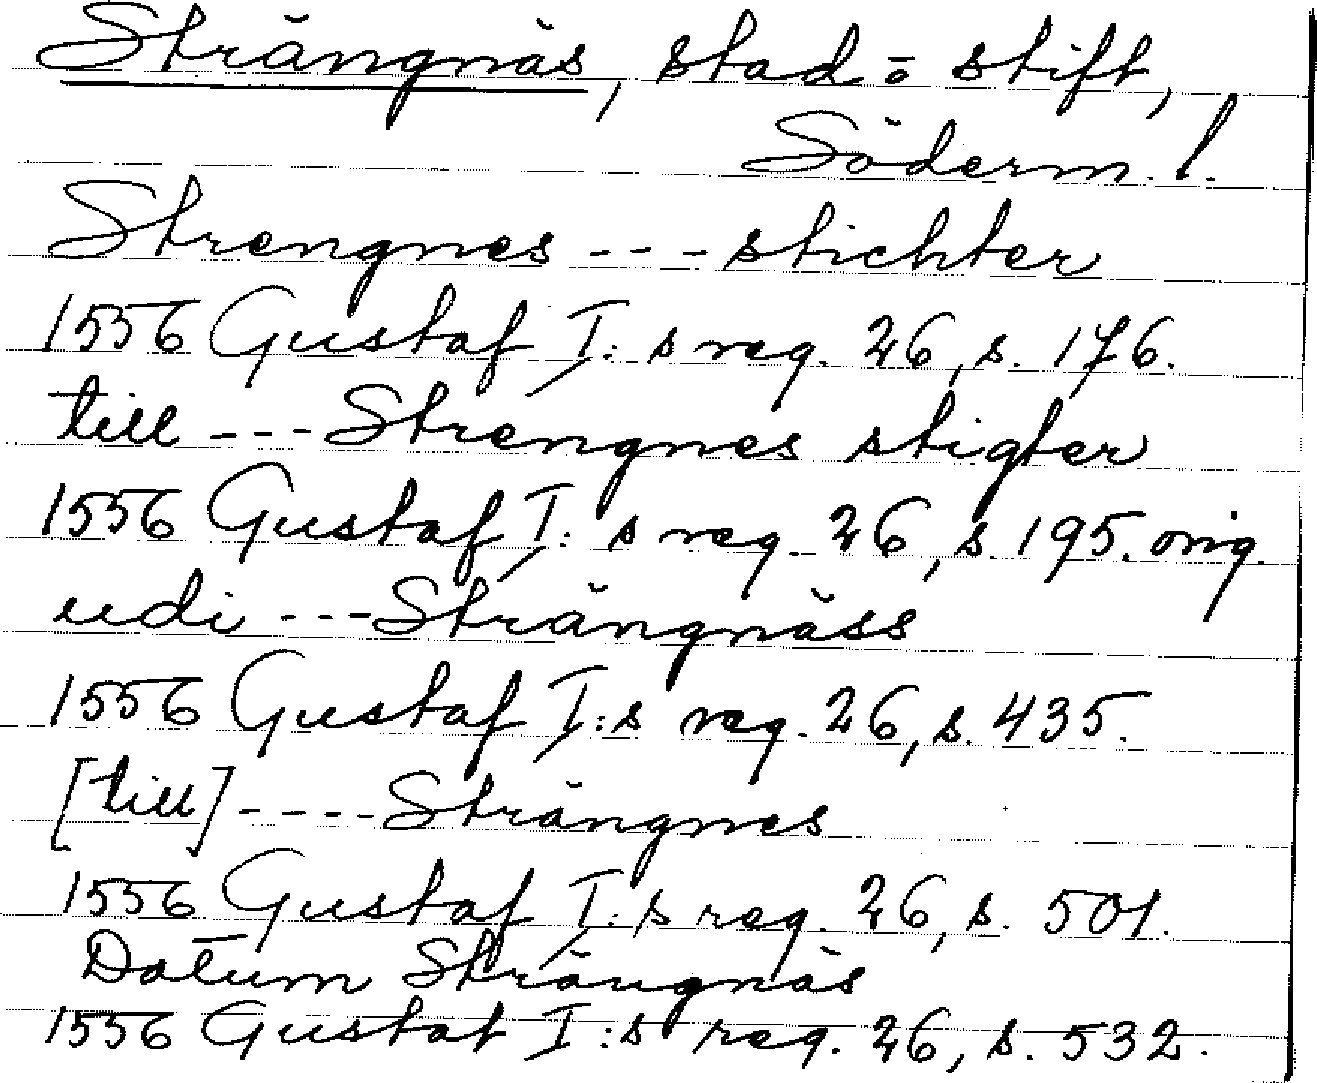 Strängnäs, stad o stift,
Söderm. l.
Strengnes --- stichter
1556 Gustaf I:s reg. 26, s. 176.
till --- Strengnes stigter
1556 Gustaf I:s reg. 26, s. 195. orig.
udi --- Strängnäss
1556 Gustaf I:s reg. 26, s. 435.
[till] ---- Strängnes
1556 Gustaf I:s reg. 26, s. 501.
Datum Strängnäs
1556 Gustaf I:s reg. 26, s. 532.